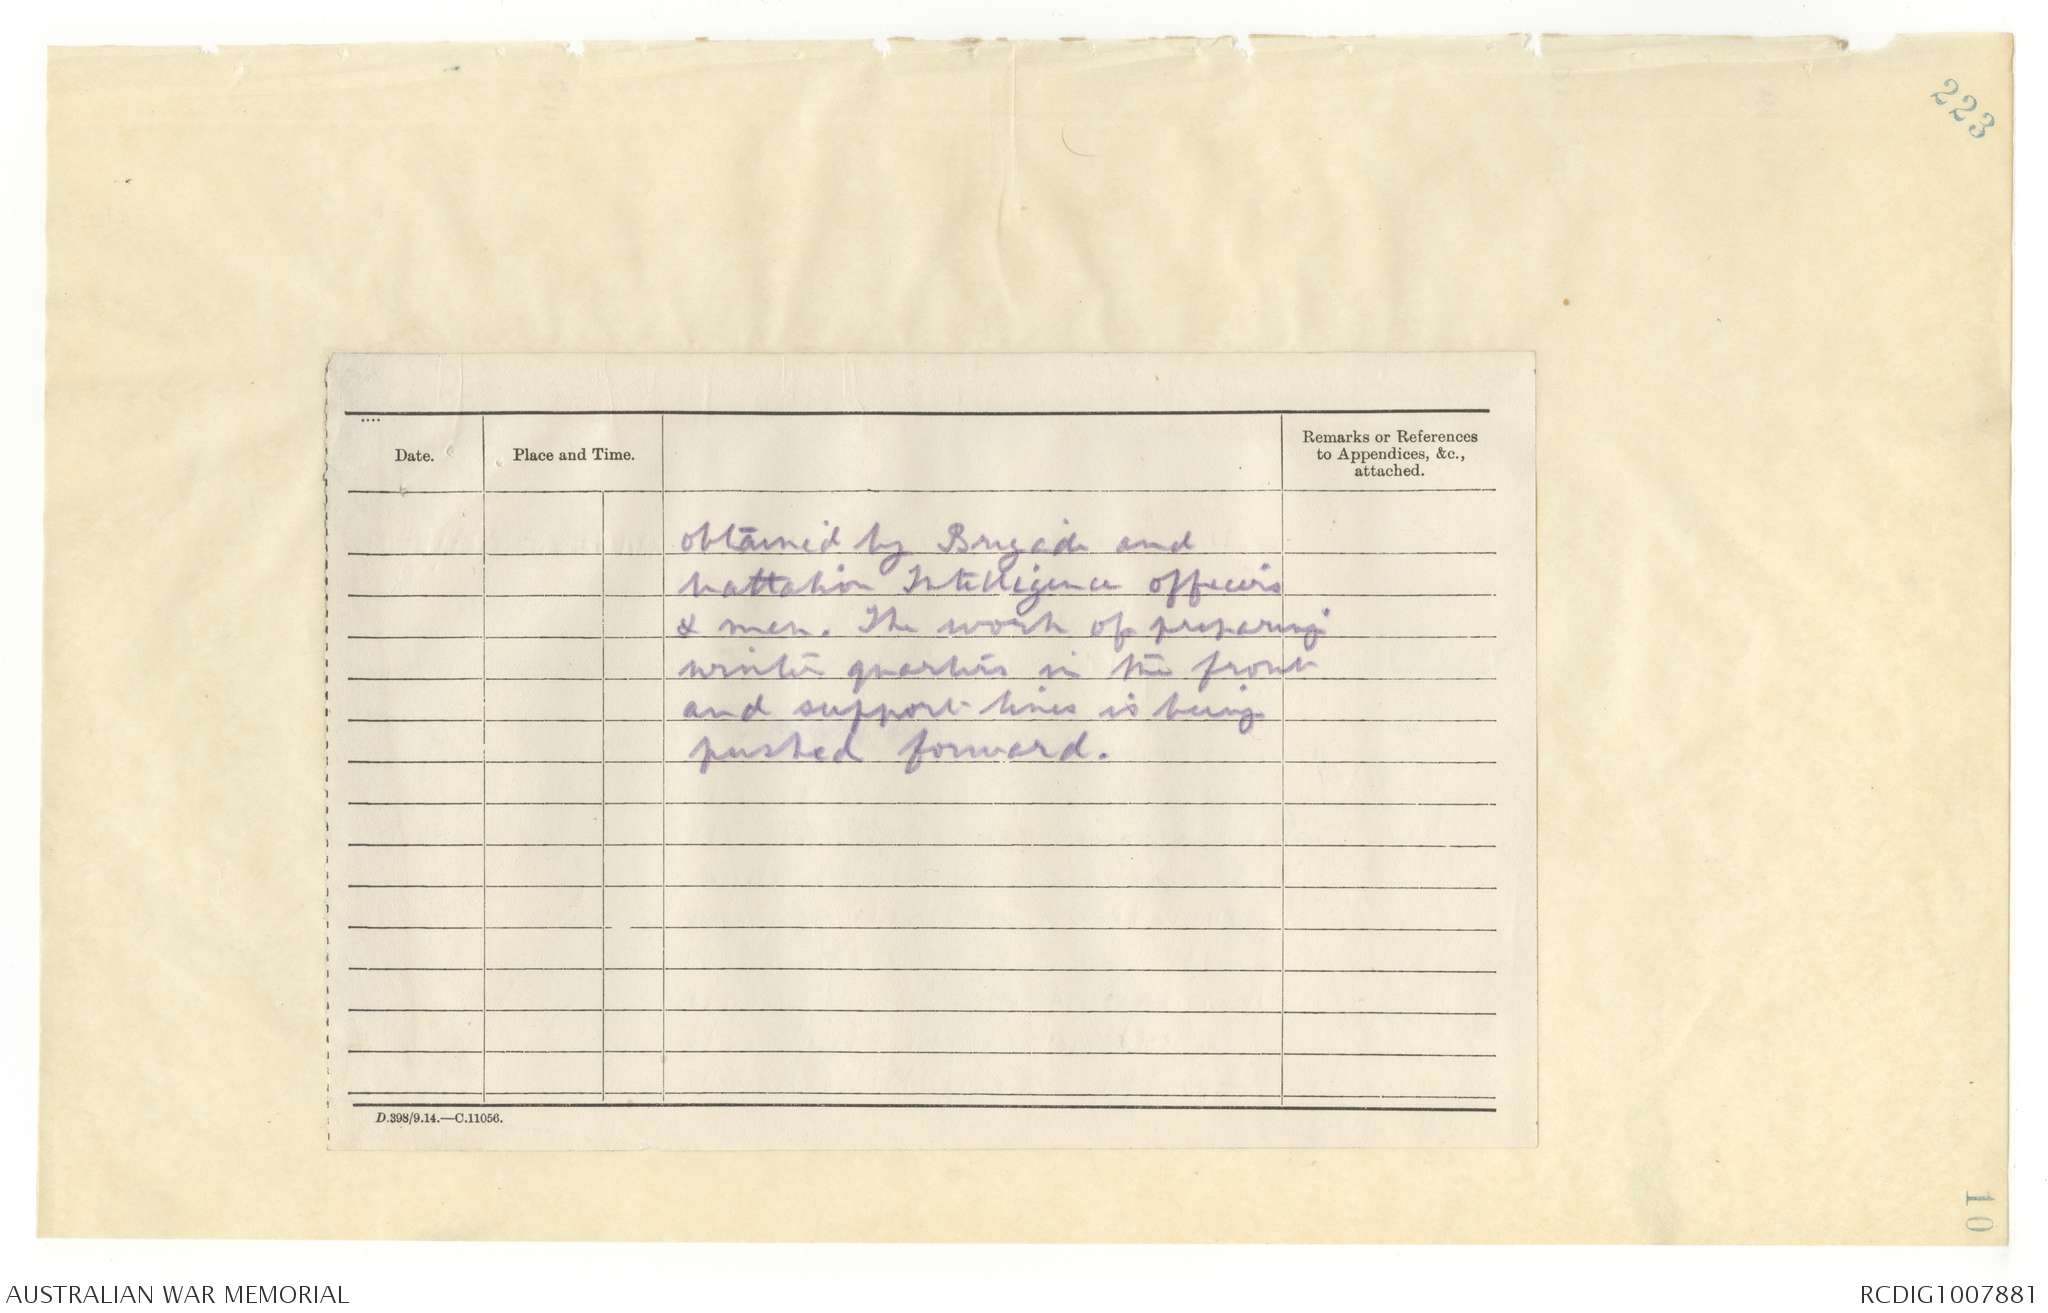 223
....
Date.
Place and Time.
Remarks or References
to Appendices, &c.,
attached.
obtained by Brigade and
battalion Intelligence officers
& men. The work of preparing
winter quarters in the front
and support lines is being
pushed forward.
D.398/9.14.—C.11056.
10
AUSTRALIAN WAR MEMORIAL
RCDIG1007881